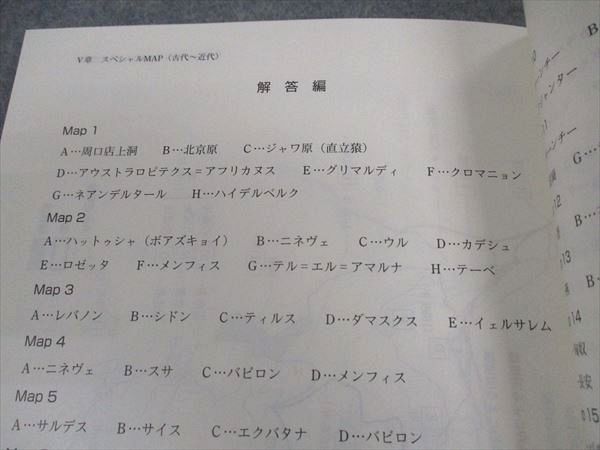 V章 スペシャルMAP（古代〜近代）
解答編
Map 1
A…周口店上洞 B…北京原 C…ジャワ原（直立猿）
D…アウストラロピテクス＝アフリカヌス E…グリマルディ F…クロマニョン
G…ネアンデルタール H…ハイデルベルク
Map 2
A…ハットゥシャ（ボアズキョイ） B…ニネヴェ C…ウル D…カデシュ
E…ロゼッタ F…メンフィス G…テル＝エル＝アマルナ H…テーベ
Map 3
A…レバノン B…シドン C…ティルス D…ダマスクス E…イェルサレム
Map 4
A…ニネヴェ B…スサ C…バビロン D…メンフィス
Map 5
A…サルデス B…サイス C…エクバタナ D…バビロン